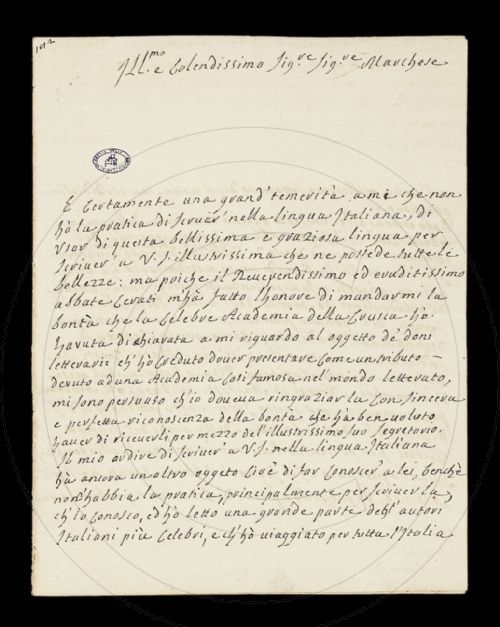 Ill.mo e Colendissimo Sig.re Sig.re Marchese
E Certamente una grand' temerità a mi che non
hò la pratica di scriver' nella lingua Italiana, di
Usar di questa bellissima e graziosa lingua per
scriver' a V. S. illustrissima che ne possede tutte le
bellezze: ma poiche il Reverendissimo ed eruditissimo
abbate Cerati m'hà fatto l'honore di mandarmi la
bontà che la Celebre Academia della Crusca hà
havuta di chiarata a mi riguardo al oggetto de' doni
letterarii ch'hò Creduto dover presentare Come un tributo
devuto ad una Academia Cosi famosa nel' mondo letterato,
mi sono persuaso ch'io doveva ringraziar la Con sincera
e perfetta riconoscenza della bontà che ha ben voluto
haver di riceverli per mezzo del'illustrissimo suo segretario.
Il mio ardire di scriver' a V. S. nella lingua Italiana
hà ancora un altro oggeto Cioè di far Conoscer' a lei, benchè
non habbia la pratica, principalmente per scriverla,
ch'io Conosco, ed hò letto una grande parte degl' autori
Italiani più Celebri, e ch'hò viaggiato per tutta l'Italia